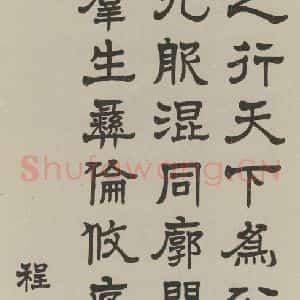 行天下為
服混同廓
羣生彝倫攸
程
Shufawang.CN